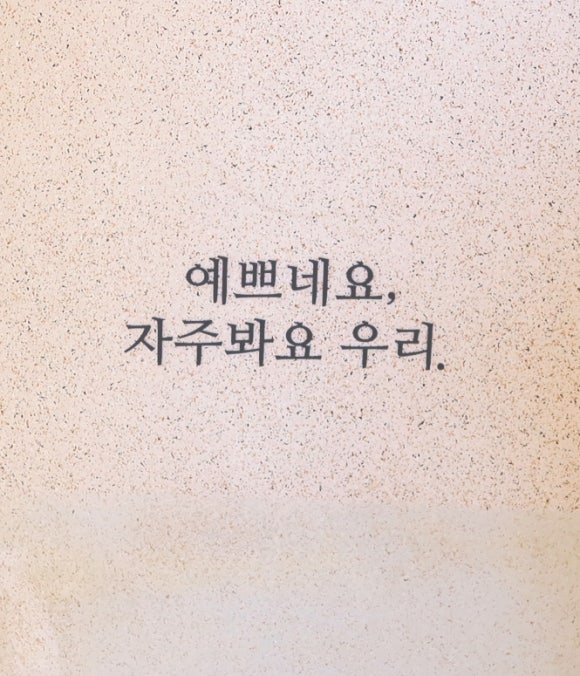 예쁘네요,
자주봐요 우리.